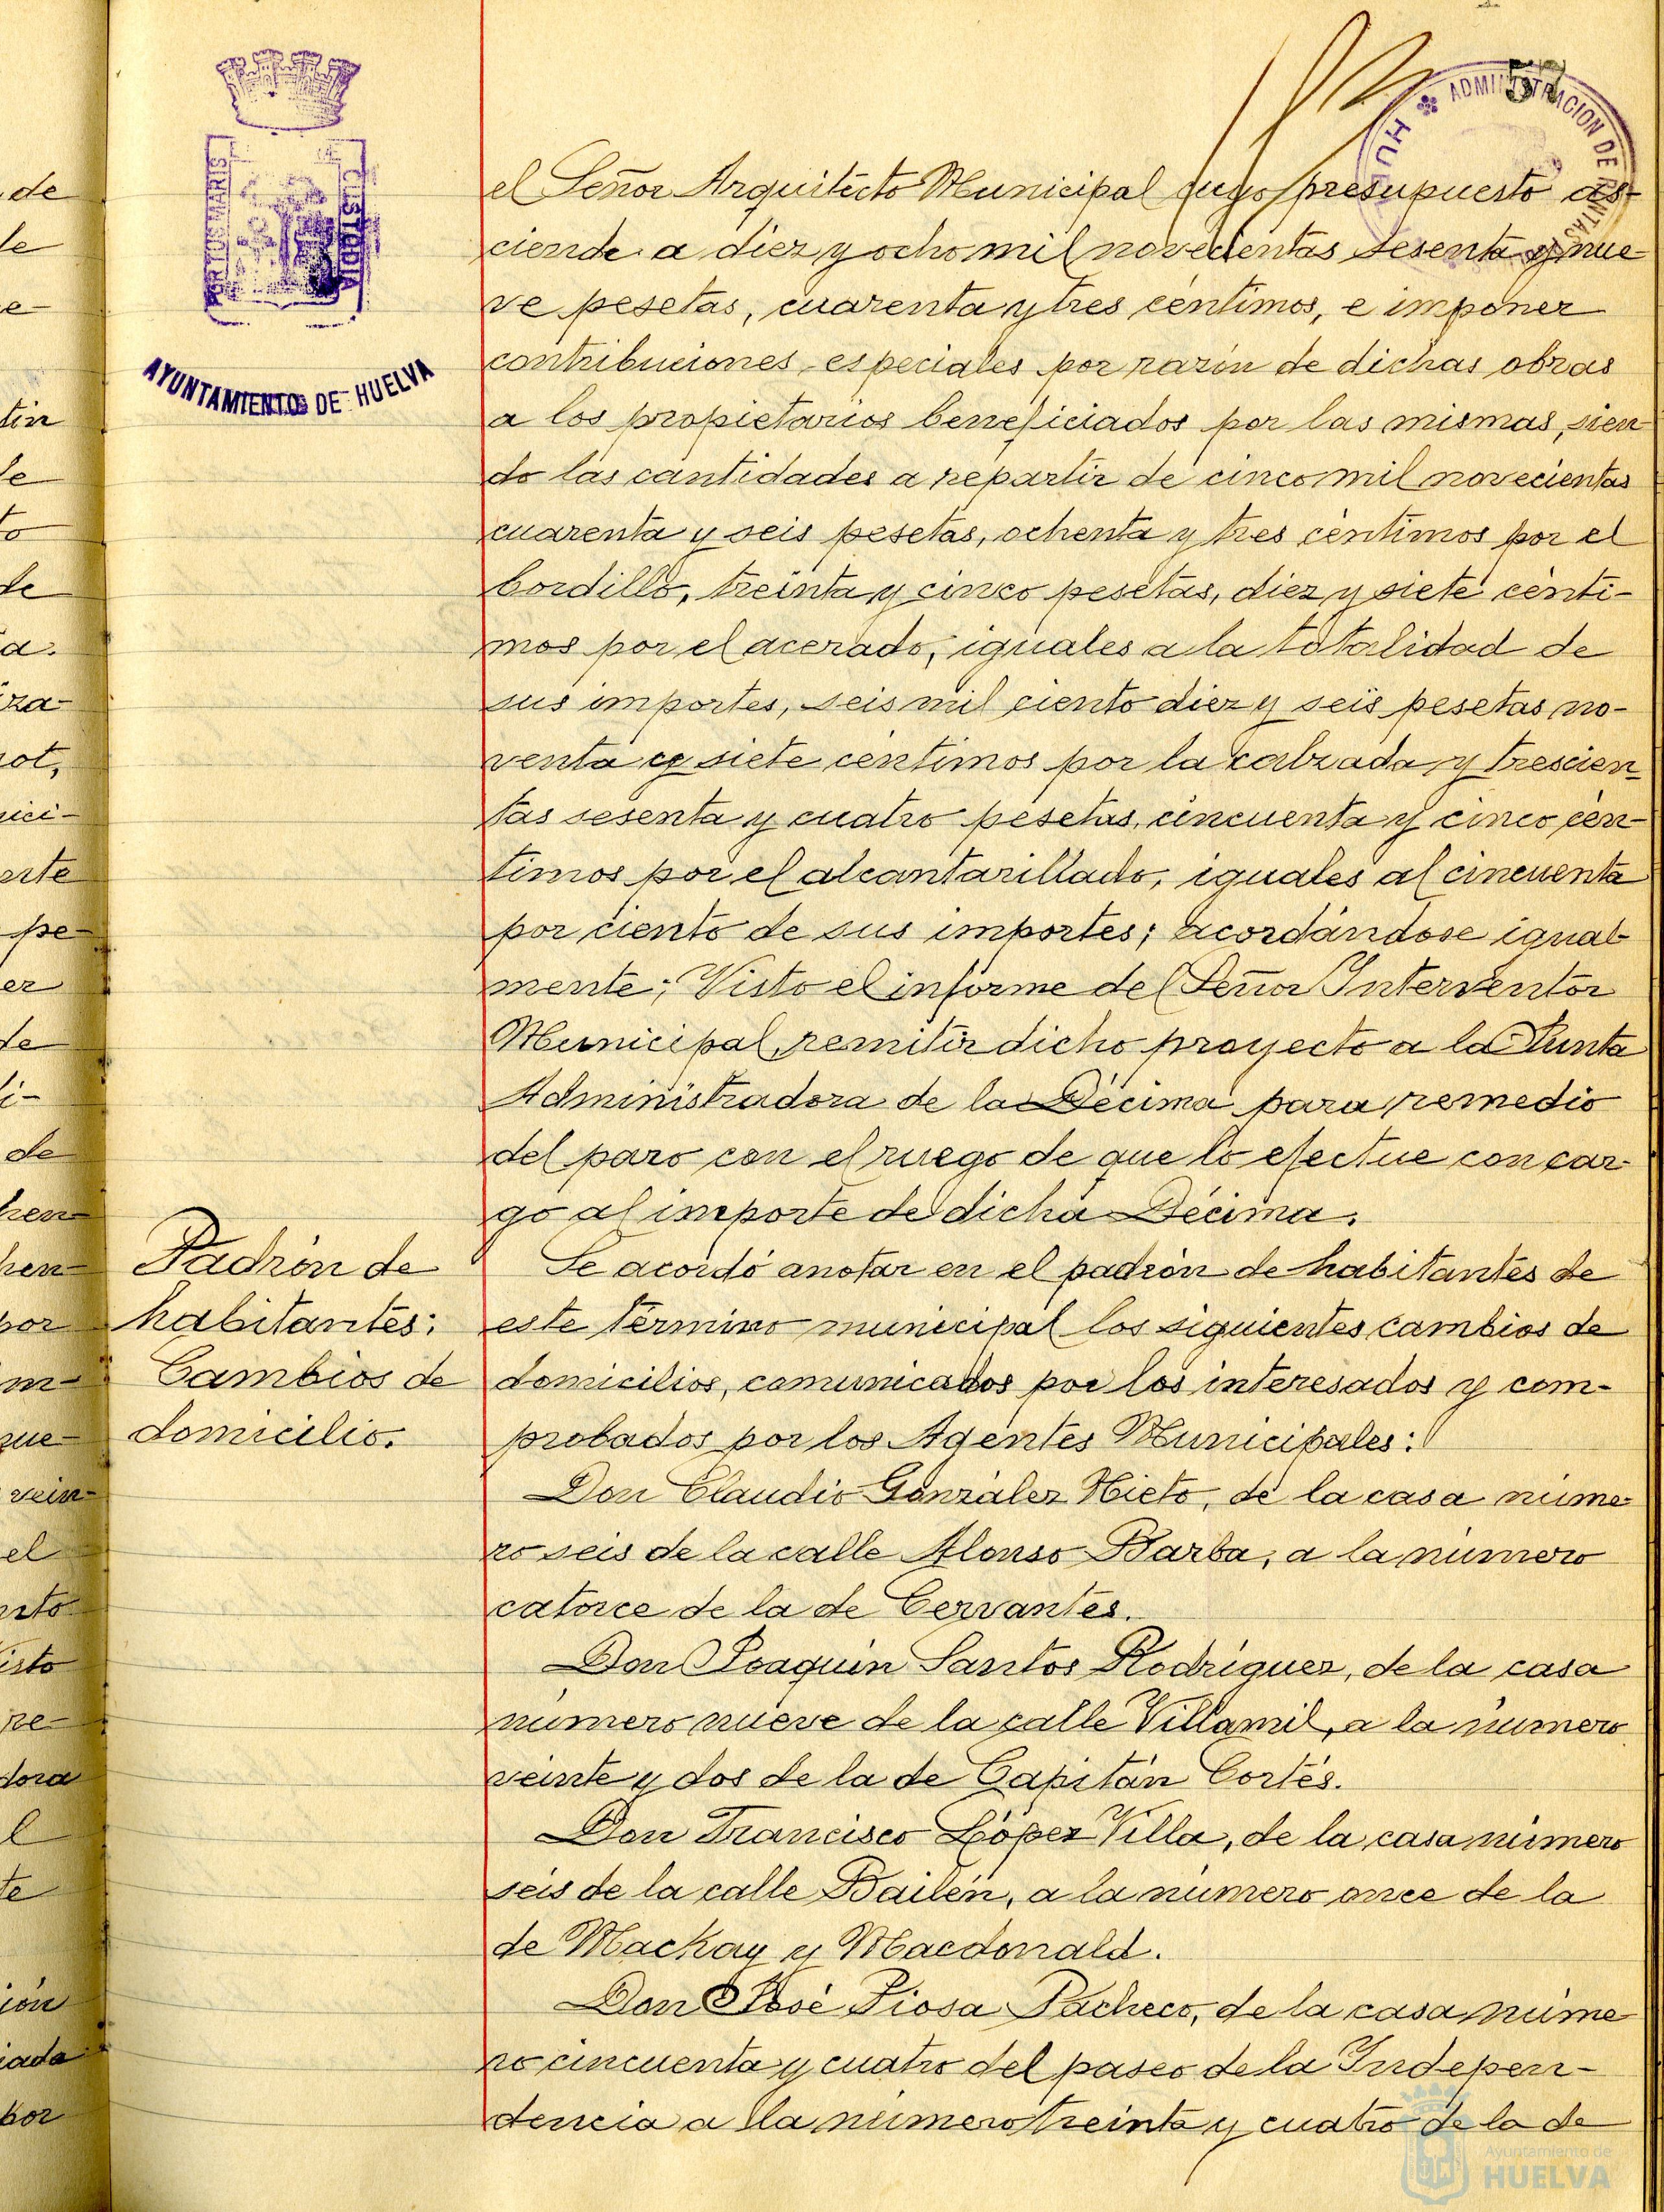 57
ADMINISTRACION DE RENTAS
HU
PORTUS MARIS
CUSTODIA
AYUNTAMIENTO DE HUELVA
el Señor Arquitecto Municipal cuyo presupuesto as-
ciende a diez y ocho mil novecientas sesenta y nue-
ve pesetas, cuarenta y tres centimos, e imponer
contribuciones especiales por razón de dichas obras
a los propietarios beneficiados por las mismas, sien
do las cantidades a repartir de cinco mil novecientas
cuarenta y seis pesetas, ochenta y tres céntimos por el
bordillo, treinta y cinco pesetas, diez y siete cénti-
mos por el acerado, iguales a la totalidad de
sus importes, seis mil ciento diez y seis pesetas no-
venta y siete centimos por la calzada y trescien
tas sesenta y cuatro pesetas, cincuenta y cinco cén-
timos por el alcantarillado, iguales al cincuenta
por ciento de sus importes; acordándose igual-
mente; Visto el informe del Señor Interventor
Municipal, remitir dicho proyecto a la Junta
Administradora de la Décima para remedio
del paro con el ruego de que lo efectue con car-
go al importe de dicha Décima.
Padrón de
habitantes:
Cambios de
domicilio.
Se acordó anotar en el padrón de habitantes de
este término municipal los siguientes cambios de
domicilios, comunicados por los interesados y com-
probados por los Agentes Municipales:
Don Claudio González Nieto, de la casa núme-
ro seis de la calle Alonso Barba, a la número
catorce de la de Cervantes.
Don Joaquín Santos Rodríguez, de la casa
número nueve de la calle Villamil, a la número
veinte y dos de la de Capitán Cortés.
Don Francisco López Villa, de la casa número
seis de la calle Bailén, a la número once de la
de Mackay y Macdonald.
Don José Piosa Pacheco, de la casa núme-
ro cincuenta y cuatro del paseo de la Indepen-
dencia a la número treinta y cuatro de la de
Ayuntamiento de
HUELVA